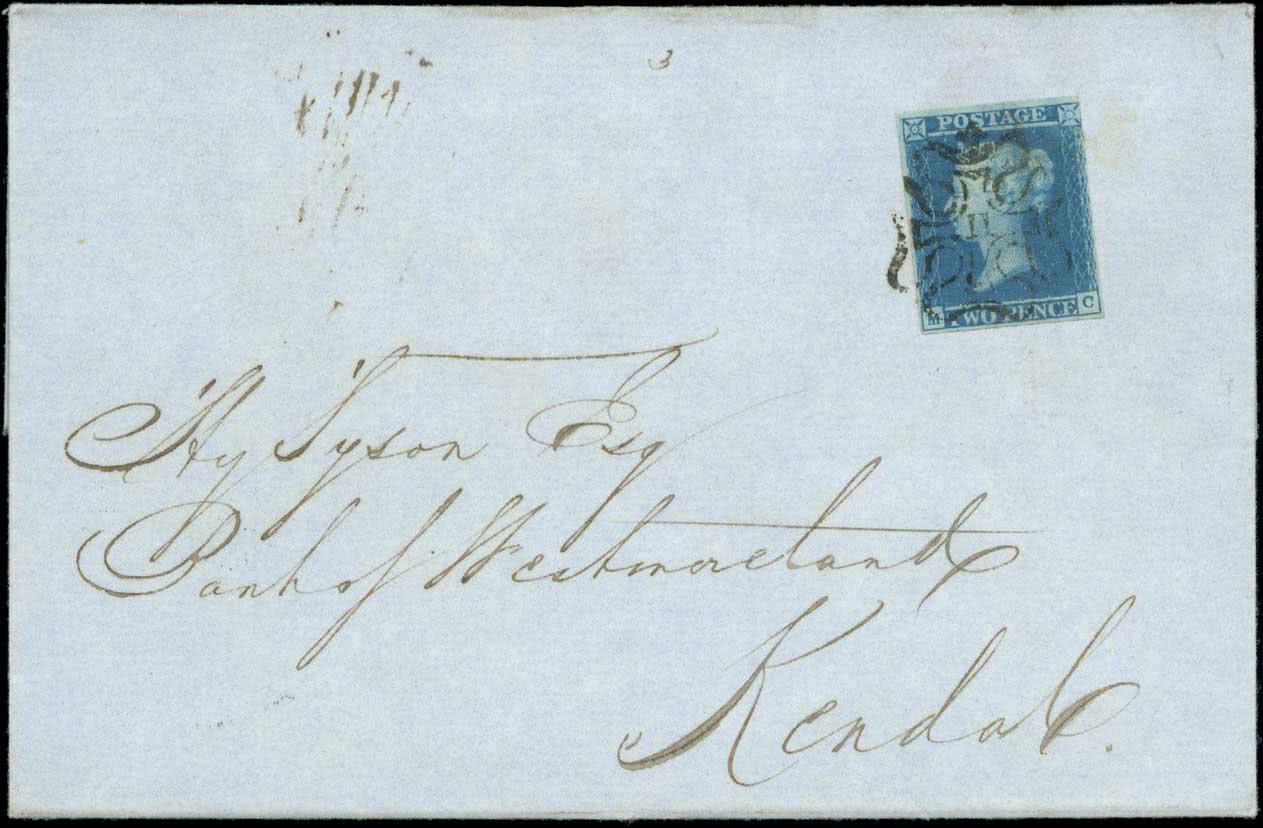 POSTAGE
M TWO PENCE C
Hy Tyson Esq
Bank of Westmoreland
Kendal.